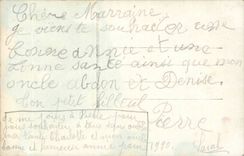 Chère Marraine
je viens te souhaiter une
bonne année et une
bonne santé ainsi que mon
oncle Abdon et Denise.
Ton petit filleul
Pierre
je me joins à Pierre pour
vous souhaiter à
Charlotte et
bonne et heureuse année pour 1920.